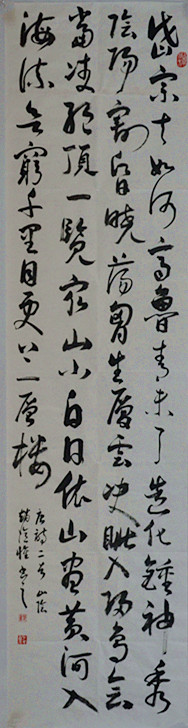 岱宗夫如何齊魯青未了造化鍾神秀
陰陽割昏曉蕩胸生層雲決眥入歸鳥會
當凌絕頂一覽衆山小白日依山盡黃河入
海流欲窮千里目更上一層樓
唐詩二首
書之